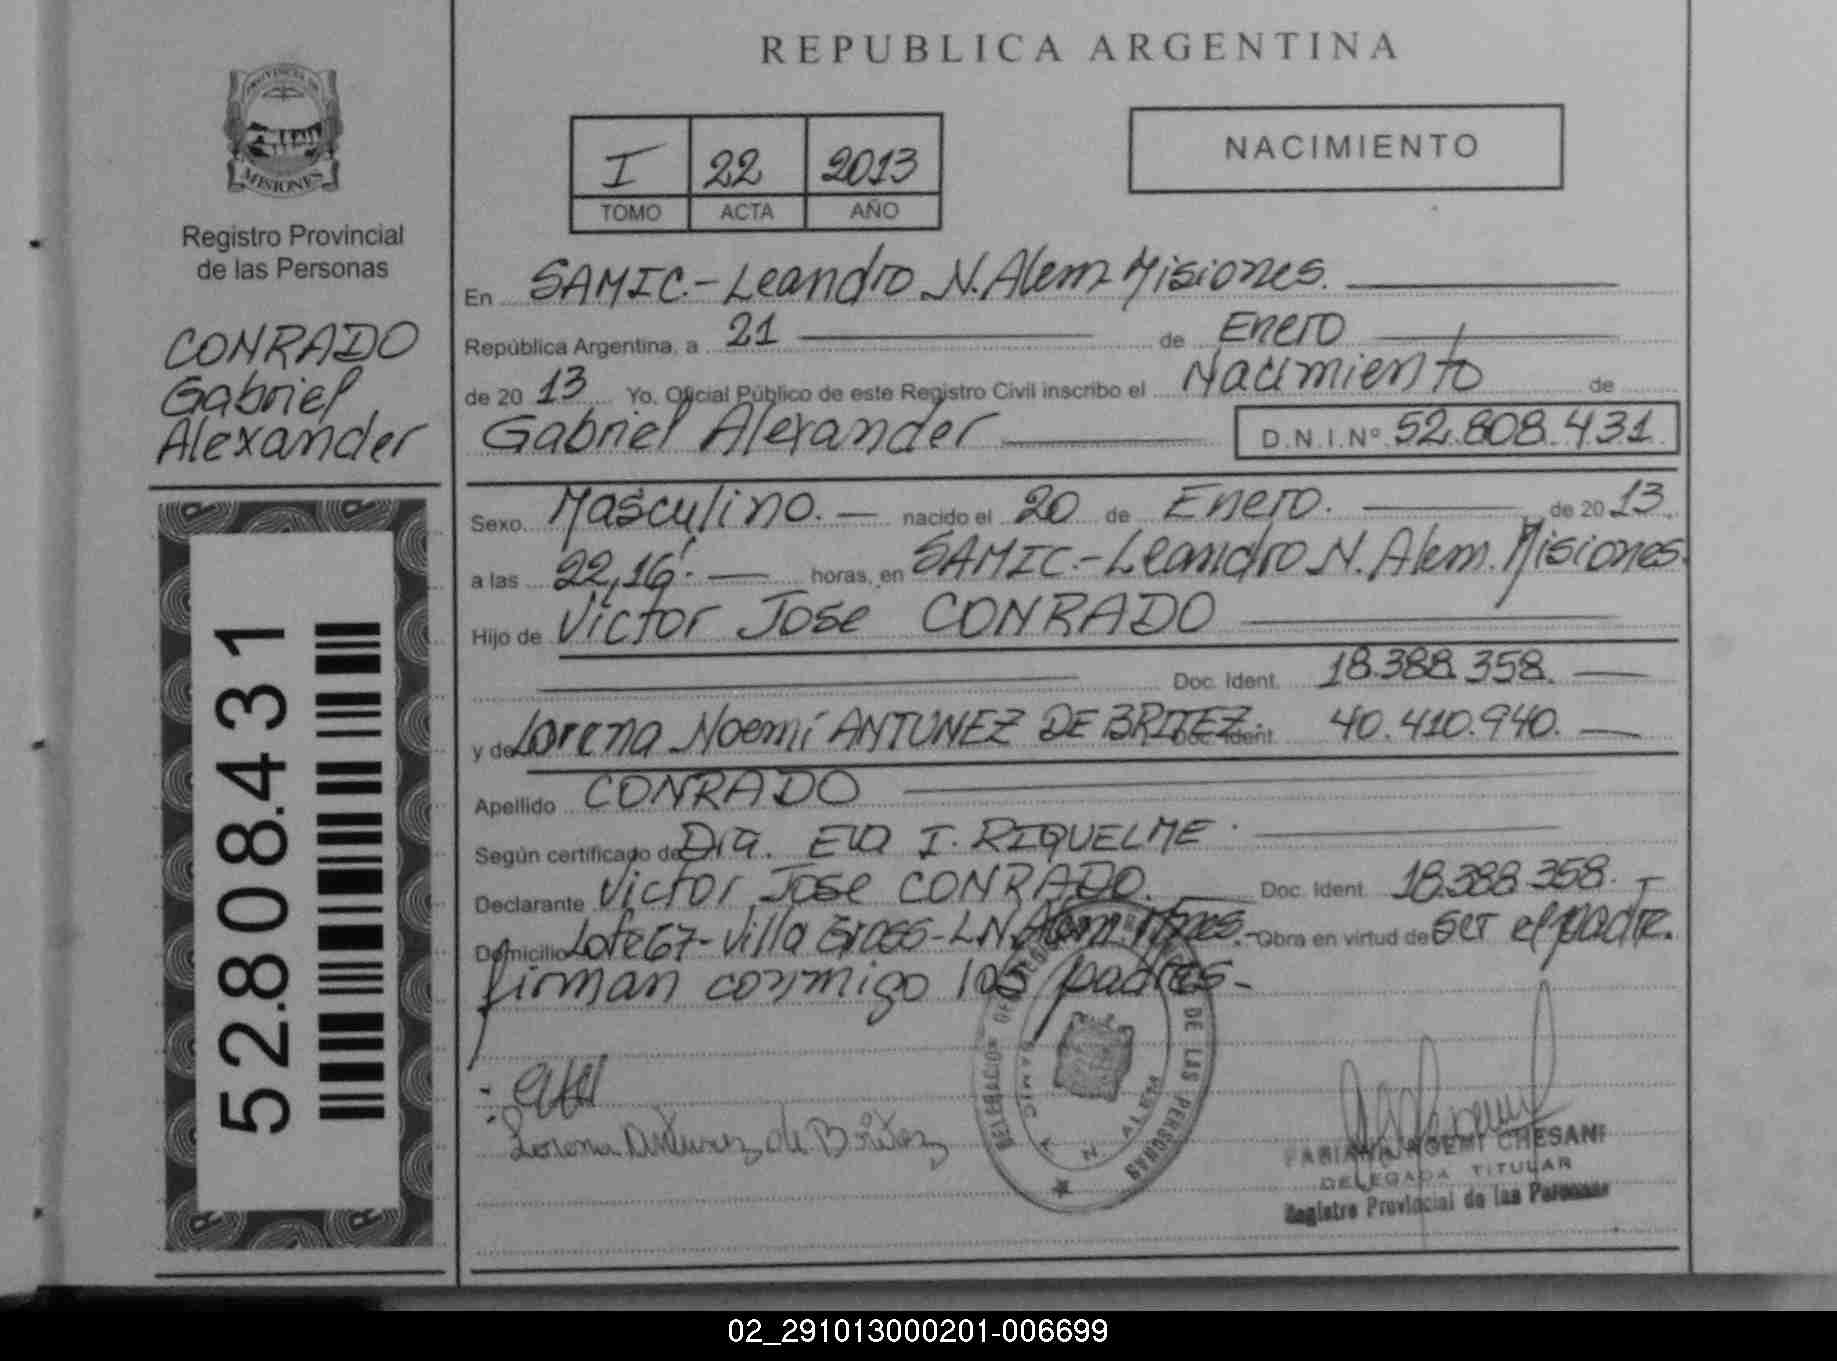 REPUBLICA ARGENTINA
PROVINCIA DE
MISIONES
Registro Provincial
de las Personas
CONRADO
Gabriel
Alexander
52.808.431
I 22 2013
TOMO ACTA AÑO
NACIMIENTO
En SAMIC.- Leandro N. Alem Misiones.
República Argentina, a 21 de Enero
de 20 13 Yo, Oficial Público de este Registro Civil inscribo el Nacimiento de
Gabriel Alexander D.N.I.Nº 52.808.431
Sexo Masculino.- nacido el 20 de Enero. de 20 13.
a las 22,16'.- horas, en SAMIC.- Leandro N. Alem. Misiones.
Hijo de Victor Jose CONRADO
Doc. Ident. 18.388.358.
y de Lorena Noemí ANTUNEZ DE BRITEZ. Doc. Ident. 40.410.940.
Apellido CONRADO
Según certificado de Dra. Eva I. RIQUELME.
Declarante Victor Jose CONRADO. Doc. Ident. 18.388.358.-
Domicilio Lote 67- Villa L.N. Alem Obra en virtud de ser el padre.
firman conmigo los padres.-
Lorena Antunez de Britez
DELEGACION DE LAS PERSONAS
SAMIC
L. N. ALEM
FABIANA NOEMI CHESANI
DELEGADA TITULAR
Registro Provincial de las Personas
02_291013000201-006699